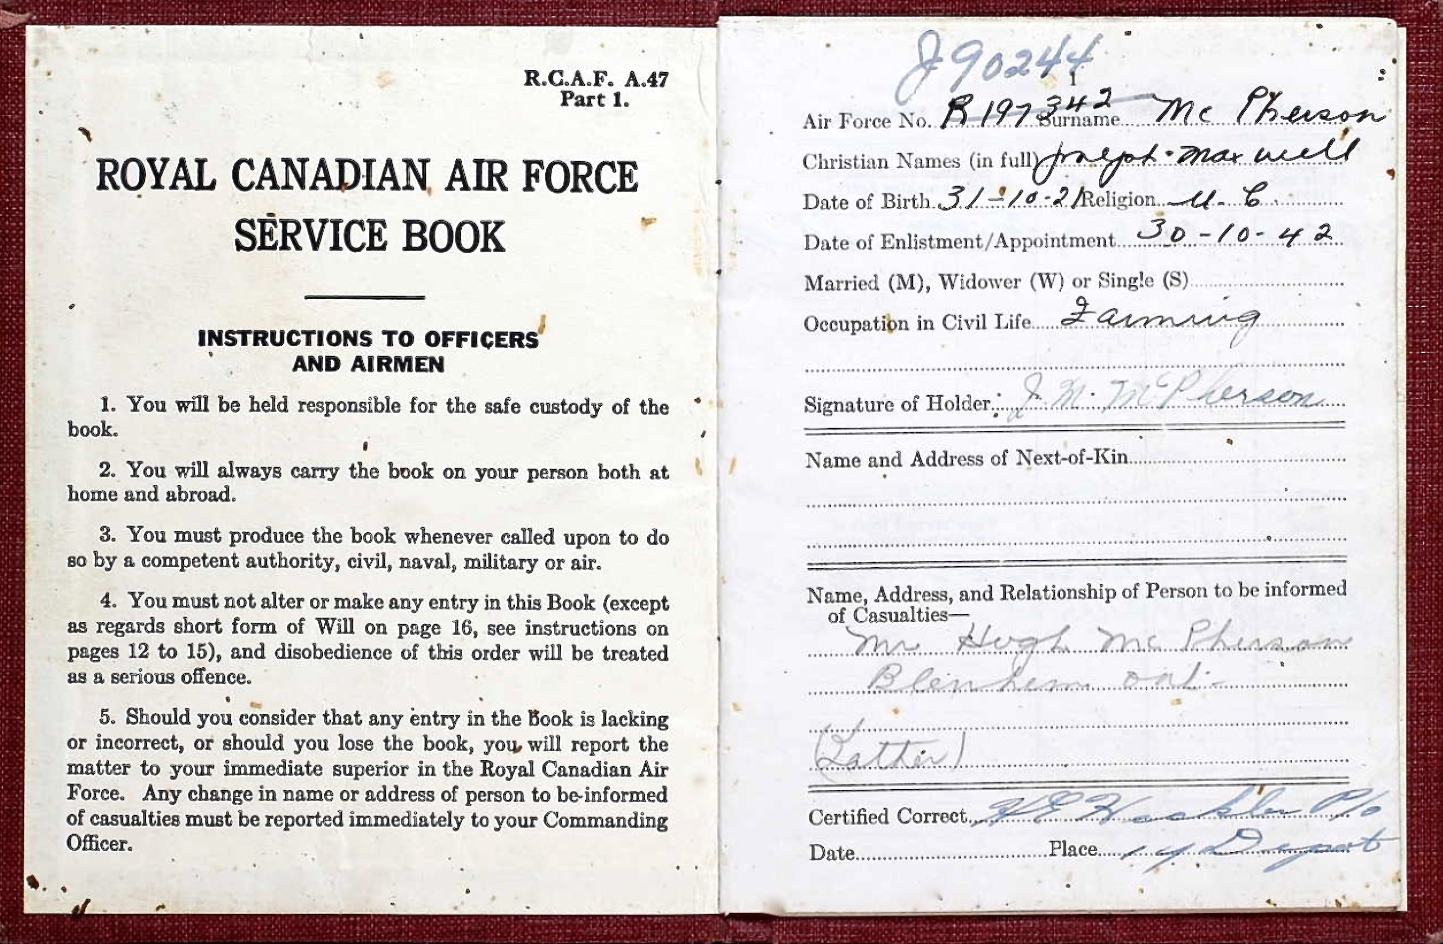 R.C.A.F. A.47
Part 1.
ROYAL CANADIAN AIR FORCE
SERVICE BOOK
INSTRUCTIONS TO OFFICERS
AND AIRMEN
1. You will be held responsible for the safe custody of the
book.
2. You will always carry the book on your person both at
home and abroad.
3. You must produce the book whenever called upon to do
so by a competent authority, civil, naval, military or air.
4. You must not alter or make any entry in this Book (except
as regards short form of Will on page 16, see instructions on
pages 12 to 15), and disobedience of this order will be treated
as a serious offence.
5. Should you consider that any entry in the Book is lacking
or incorrect, or should you lose the book, you will report the
matter to your immediate superior in the Royal Canadian Air
Force. Any change in name or address of person to be informed
of casualties must be reported immediately to your Commanding
Officer.
J90244
Air Force No. R197342 Surname Mc Pherson
Christian Names (in full) Joseph Maxwell
Date of Birth 31-10-21 Religion U.C.
Date of Enlistment/Appointment 30-10-42
Married (M), Widower (W) or Single (S)
Occupation in Civil Life Farming
Signature of Holder: J.M. McPherson
Name and Address of Next-of-Kin
Name, Address, and Relationship of Person to be informed
of Casualties—
Mr Hugh Mc Pherson
Blenheim Ont.
(Father)
Certified Correct P/O
Date Place Depot